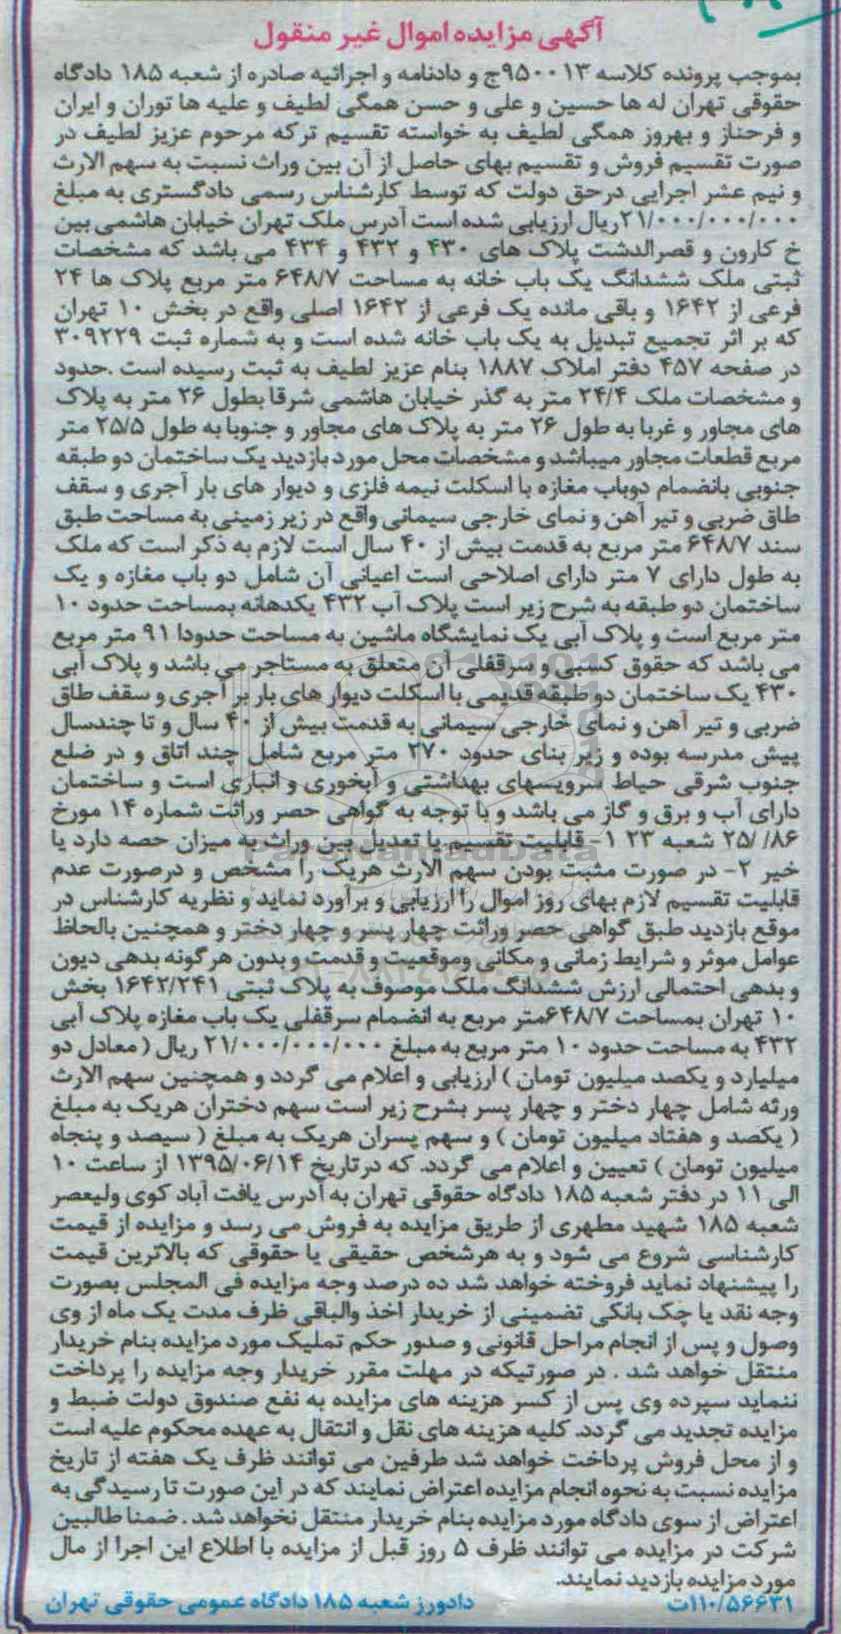 آگهی مزایده اموال غیر منقول
بموجب پرونده کلاسه ۹۵۰۰۱۳ج و دادنامه و اجرائیه صادره از شعبه ۱۸۵ دادگاه
حقوقی تهران له ها حسین و علی و حسن همگی لطیف و علیه ها توران و ایران
و فرحناز و بهروز همگی لطیف به خواسته تقسیم ترکه مرحوم عزیز لطیف در
صورت تقسیم فروش و تقسیم بهای حاصل از آن بین وراث نسبت به سهم الارث
و نیم عشر اجرایی درحق دولت که توسط کارشناس رسمی دادگستری به مبلغ
۲۱/۰۰۰/۰۰۰/۰۰۰ریال ارزیابی شده است آدرس ملک تهران خیابان هاشمی بین
خ کارون و قصرالدشت پلاک های ۴۳۰ و ۴۳۲ و ۴۳۴ می باشد که مشخصات
ثبتی ملک ششدانگ یک باب خانه به مساحت ۶۴۸/۷ متر مربع پلاک ها ۲۴
فرعی از ۱۶۴۲ و باقی مانده یک فرعی از ۱۶۴۲ اصلی واقع در بخش ۱۰ تهران
که بر اثر تجمیع تبدیل به یک باب خانه شده است و به شماره ثبت ۳۰۹۲۲۹
در صفحه ۴۵۷ دفتر املاک ۱۸۸۷ بنام عزیز لطیف به ثبت رسیده است .حدود
و مشخصات ملک ۲۴/۴ متر به گذر خیابان هاشمی شرقا بطول ۲۶ متر به پلاک
های مجاور و غربا به طول ۲۶ متر به پلاک های مجاور و جنوبا به طول ۲۵/۵ متر
مربع قطعات مجاور میباشد و مشخصات محل مورد بازدید یک ساختمان دو طبقه
جنوبی بانضمام دوباب مغازه با اسکلت نیمه فلزی و دیوار های بار آجری و سقف
طاق ضربی و تیر آهن و نمای خارجی سیمانی واقع در زیر زمینی به مساحت طبق
سند ۶۴۸/۷ متر مربع به قدمت بیش از ۴۰ سال است لازم به ذکر است که ملک
به طول دارای ۷ متر دارای اصلاحی است اعیانی آن شامل دو باب مغازه و یک
ساختمان دو طبقه به شرح زیر است پلاک آب ۴۳۲ یکدهانه بمساحت حدود ۱۰
متر مربع است و پلاک آبی یک نمایشگاه ماشین به مساحت حدودا ۹۱ متر مربع
می باشد که حقوق کسبی و سرقفلی آن متعلق به مستاجر می باشد و پلاک آبی
۴۳۰ یک ساختمان دو طبقه قدیمی با اسکلت دیوار های بار بر آجری و سقف طاق
ضربی و تیر آهن و نمای خارجی سیمانی به قدمت بیش از ۴۰ سال و تا چندسال
پیش مدرسه بوده و زیر بنای حدود ۲۷۰ متر مربع شامل چند اتاق و در ضلع
جنوب شرقی حیاط سرویسهای بهداشتی و آبخوری و انباری است و ساختمان
دارای آب و برق و گاز می باشد و با توجه به گواهی حصر وراثت شماره ۱۴ مورخ
۲۵/ /۸۶ شعبه ۲۳ ۱- قابلیت تقسیم یا تعدیل بین وراث به میزان حصه دارد یا
خیر ۲- در صورت مثبت بودن سهم الارث هریک را مشخص و درصورت عدم
قابلیت تقسیم لازم بهای روز اموال را ارزیابی و برآورد نماید و نظریه کارشناس در
موقع بازدید طبق گواهی حصر وراثت چهار پسر و چهار دختر و همچنین بالحاظ
عوامل موثر و شرایط زمانی و مکانی وموقعیت و قدمت و بدون هرگونه بدهی دیون
و بدهی احتمالی ارزش ششدانگ ملک موصوف به پلاک ثبتی ۱۶۴۲/۲۴۱ بخش
۱۰ تهران بمساحت ۶۴۸/۷متر مربع به انضمام سرقفلی یک باب مغازه پلاک آبی
۴۳۲ به مساحت حدود ۱۰ متر مربع به مبلغ ۲۱/۰۰۰/۰۰۰/۰۰۰ ریال ( معادل دو
میلیارد و یکصد میلیون تومان ) ارزیابی و اعلام می گردد و همچنین سهم الارث
ورثه شامل چهار دختر و چهار پسر بشرح زیر است سهم دختران هریک به مبلغ
( یکصد و هفتاد میلیون تومان ) و سهم پسران هریک به مبلغ ( سیصد و پنجاه
میلیون تومان ) تعیین و اعلام می گردد. که درتاریخ ۱۳۹۵/۰۶/۱۴ از ساعت ۱۰
الی ۱۱ در دفتر شعبه ۱۸۵ دادگاه حقوقی تهران به آدرس یافت آباد کوی ولیعصر
شعبه ۱۸۵ شهید مطهری از طریق مزایده به فروش می رسد و مزایده از قیمت
کارشناسی شروع می شود و به هرشخص حقیقی یا حقوقی که بالاترین قیمت
را پیشنهاد نماید فروخته خواهد شد ده درصد وجه مزایده فی المجلس بصورت
وجه نقد یا چک بانکی تضمینی از خریدار اخذ والباقی ظرف مدت یک ماه از وی
وصول و پس از انجام مراحل قانونی و صدور حکم تملیک مورد مزایده بنام خریدار
منتقل خواهد شد . در صورتیکه در مهلت مقرر خریدار وجه مزایده را پرداخت
ننماید سپرده وی پس از کسر هزینه های مزایده به نفع صندوق دولت ضبط و
مزایده تجدید می گردد. کلیه هزینه های نقل و انتقال به عهده محکوم علیه است
و از محل فروش پرداخت خواهد شد طرفین می توانند ظرف یک هفته از تاریخ
مزایده نسبت به نحوه انجام مزایده اعتراض نمایند که در این صورت تا رسیدگی به
اعتراض از سوی دادگاه مورد مزایده بنام خریدار منتقل نخواهد شد . ضمنا طالبین
شرکت در مزایده می توانند ظرف ۵ روز قبل از مزایده با اطلاع این اجرا از مال
مورد مزایده بازدید نمایند.
۱۱۰/۵۶۶۳۱ت دادورز شعبه ۱۸۵ دادگاه عمومی حقوقی تهران